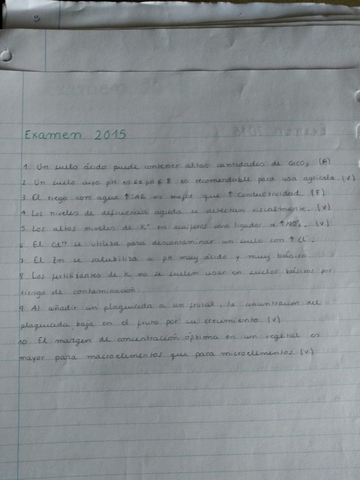 Examen 2015
1. Un suelo ácido puede contener altas cantidades de CaCO3 (F)
2. Un suelo cuyo pH es 6.8 es recomendable para uso agrícola (V)
3. El riego con agua ↑SAR es mejor que ↑ Conductividad. (F)
4. Los niveles de deficiencia aguda se detectan visualmente. (V)
5. Los altos niveles de K+ en acuíferos van ligados a ↑NO3- (V)
6. El Ca++ se utiliza para descontaminar un suelo con ↑ Cl-
7. El Zn se solubiliza a pH muy ácido y muy básico
8. Los fertilizantes de no se suelen usar en suelos básicos por
riesgo de contaminación.
9. Al añadir un plaguicida a un frutal, la concentración del
plaguicida baja en el fruto por su crecimiento (V)
10. El margen de concentración óptima en un vegetal es
mayor para macroelementos que para microelementos (V)